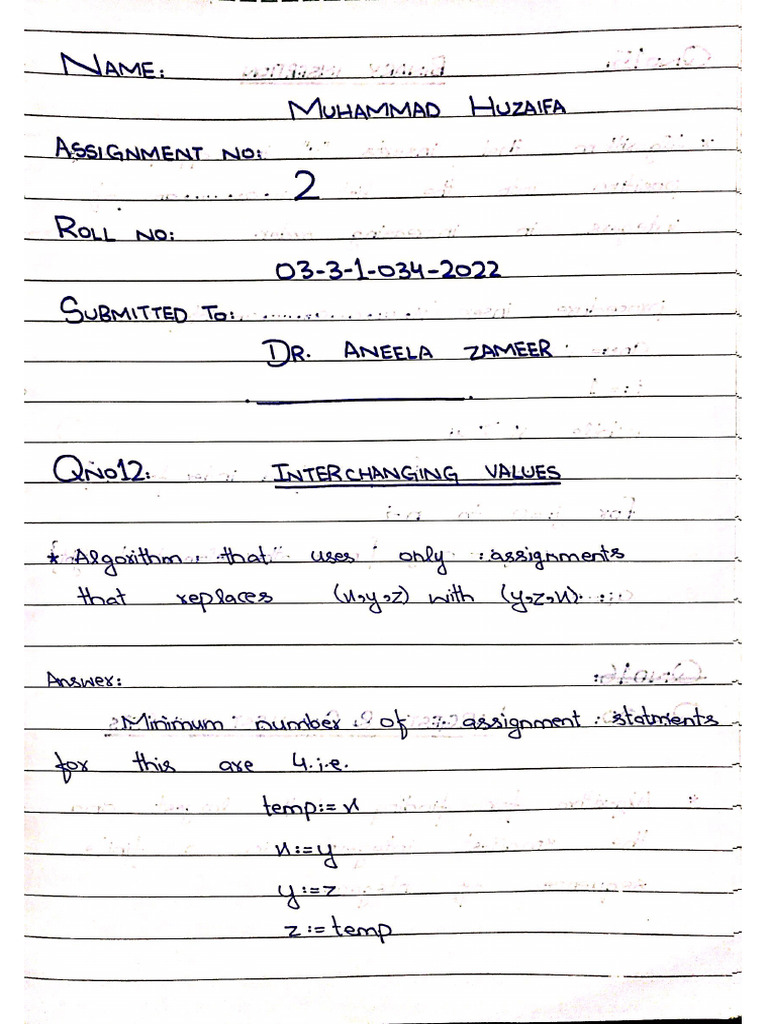 NAME:
MUHAMMAD HUZAIFA
ASSIGNMENT NO:
2
ROLL NO:
03-3-1-034-2022
SUBMITTED TO:
DR. ANEELA ZAMEER
QNO12: INTERCHANGING VALUES
* Algorithm that uses only assignments
that replaces (x,y,z) with (y,z,x).
Answer:
Minimum number of assignment statments
for this are 4.i.e.
temp:=x
x:=y
y:=z
z:=temp